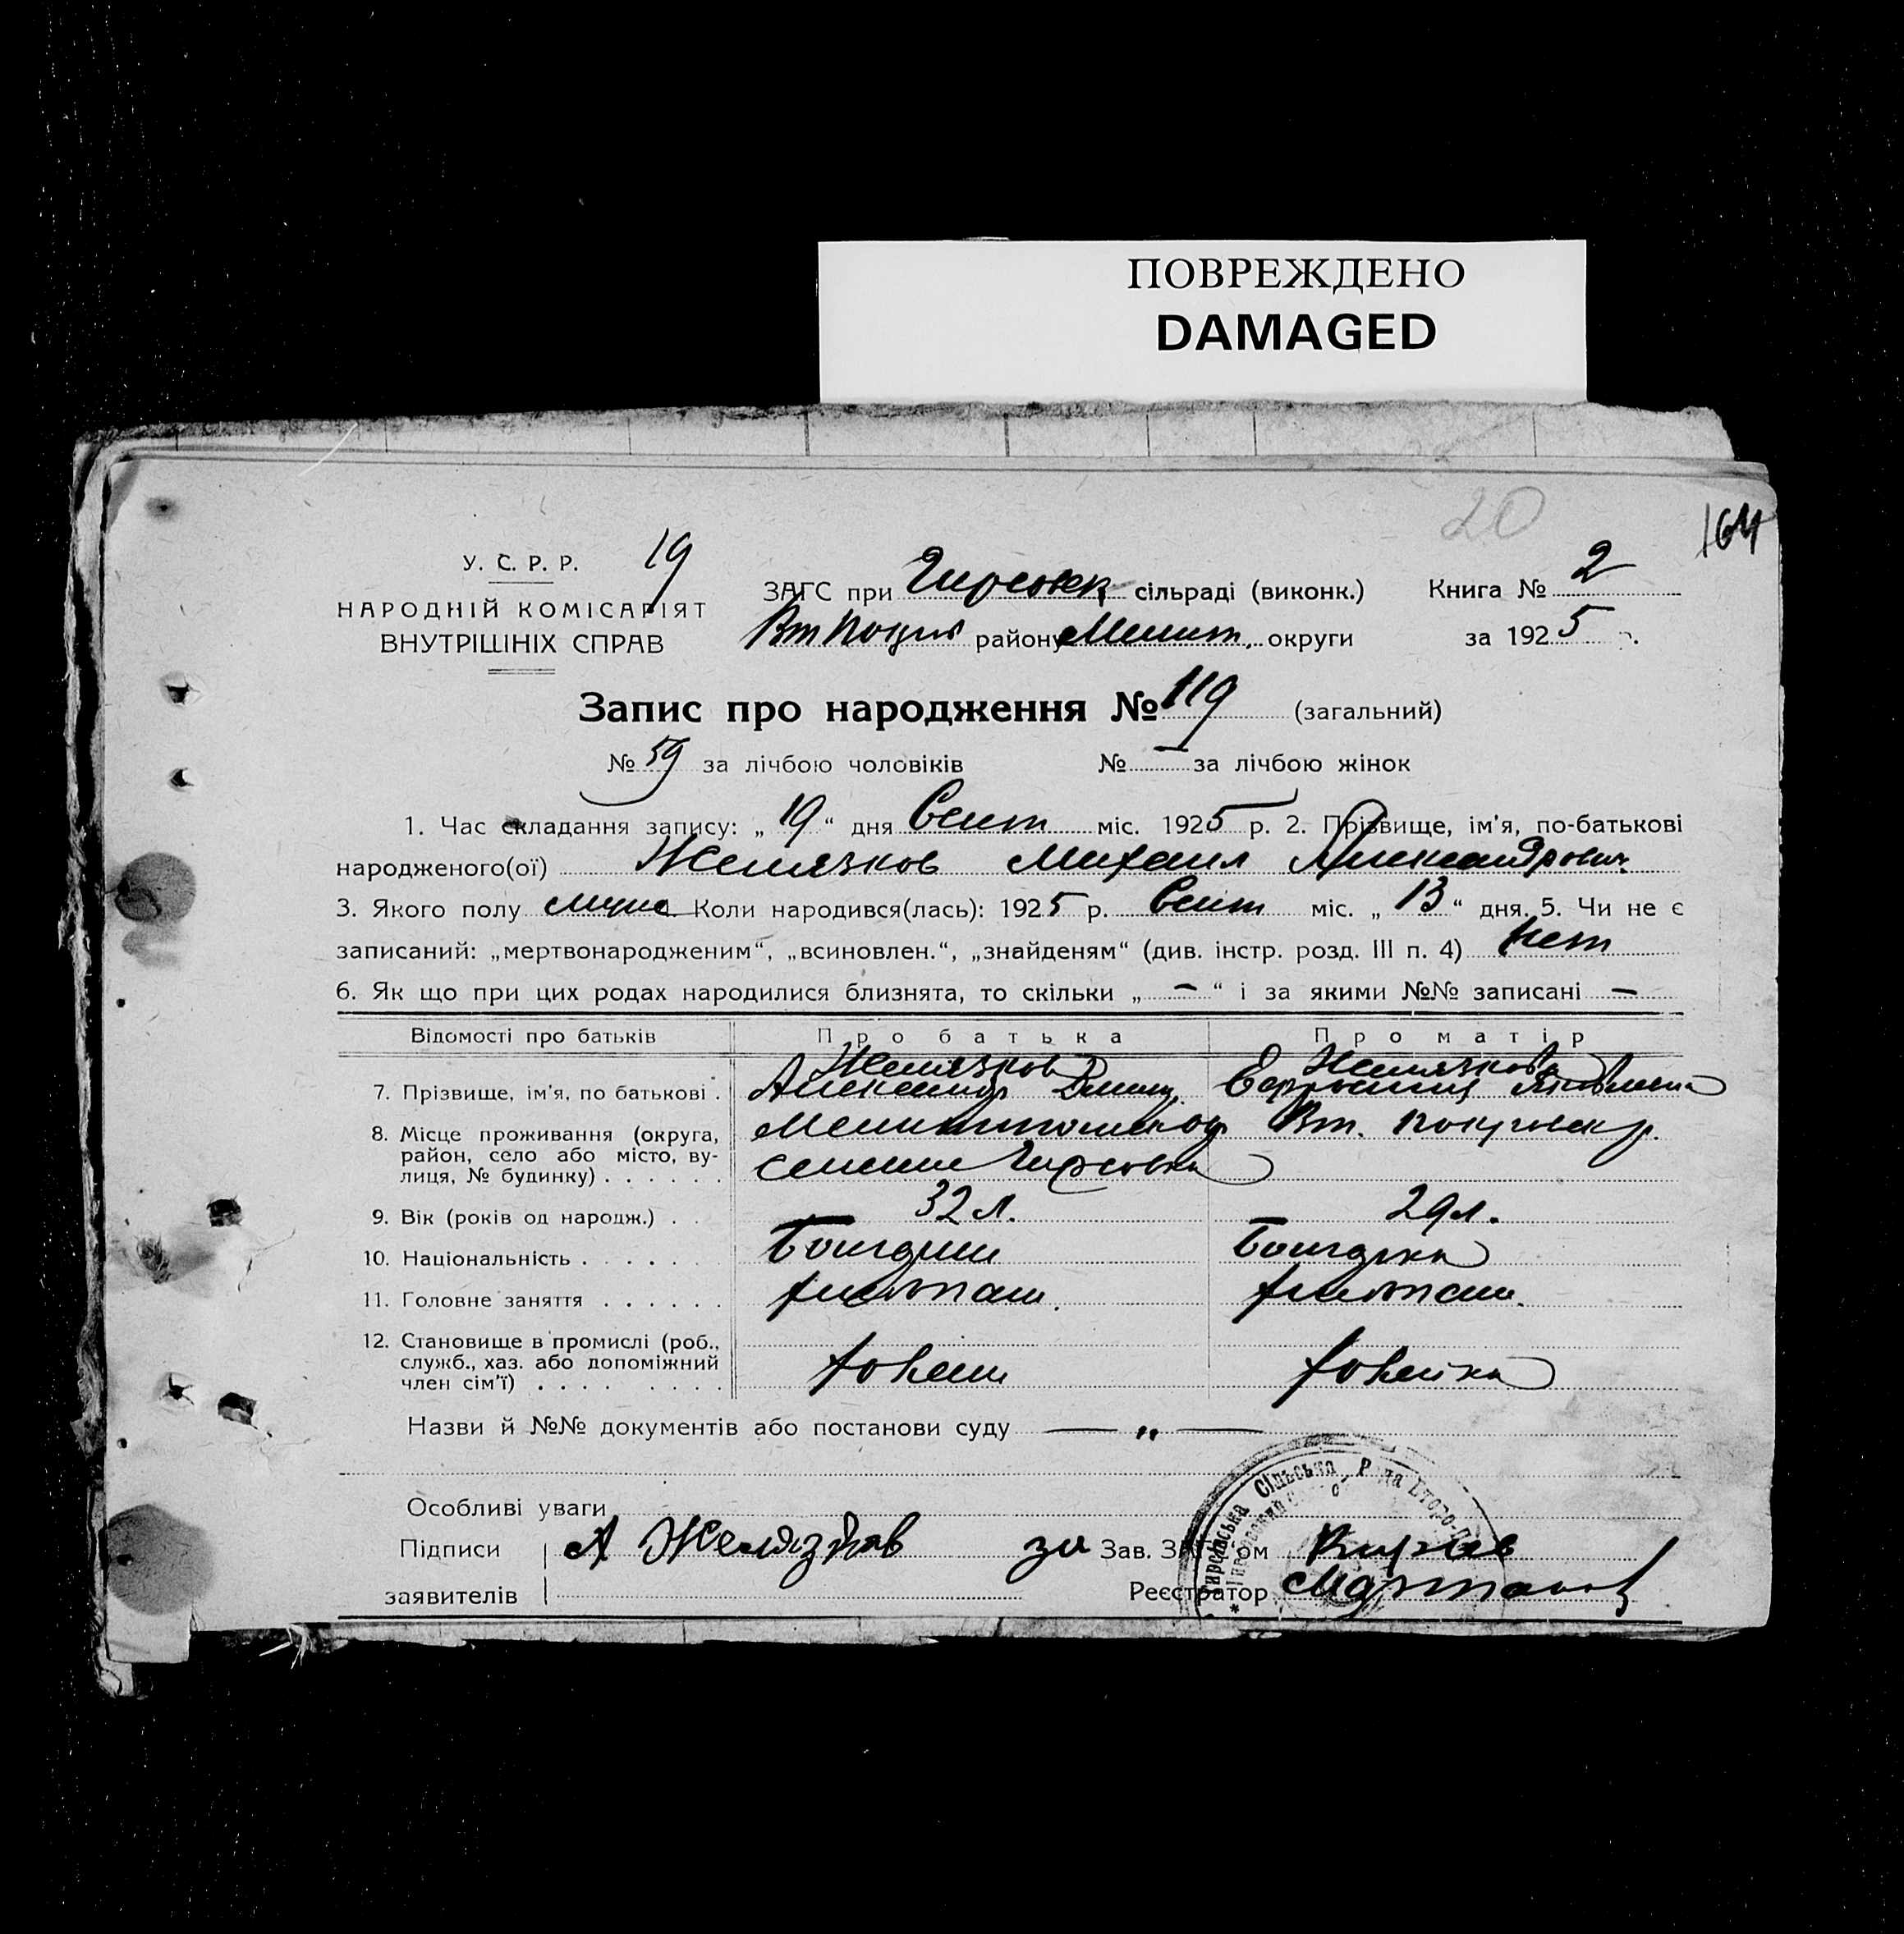 ПОВРЕЖДЕНО
DAMAGED
20
164
У. С. Р. Р. 19
НАРОДНІЙ КОМІСАРІЯТ
ВНУТРІШНІХ СПРАВ
ЗАГС при сільраді (виконк.) Книга № 2
району Мелит. округи за 1925 р.
Запис про народження № 119 (загальний)
№ 59 за лічбою чоловіків № — за лічбою жінок
1. Час складання запису: „19“ дня Сент міс. 1925 р. 2. Прізвище, ім'я, по-батькові
народженого(ої) Желязков Михаил Александрович
3. Якого полу муж Коли народився(лась): 1925 р. Сент міс. „13“ дня. 5. Чи не є
записаний: „мертвонародженим“, „всиновлен.“, „знайденям“ (див. інстр. розд. III п. 4) нет
6. Як що при цих родах народилися близнята, то скільки „—“ і за якими №№ записані —
Відомості про батьків Про батька Про матір
7. Прізвище, ім'я, по батькові . Желязков Александр Желязкова
8. Місце проживання (округа, район, село або місто, вулиця, № будинку) . . . . . . Вт. селение Гирсовка
9. Вік (років од народж.) . . 32 л. 29 л.
10. Національність . . . . . . Болгарин Болгарка
11. Головне заняття . . . . . . хлебопаш. хлебопаш.
12. Становище в промислі (роб., служб., хаз. або допоміжний член сім'ї) . . . . . . . . хозяин хозяйка
Назви й №№ документів або постанови суду — „ —
Особливі уваги
Підписи А Желязков за Зав. ЗАГС'ом
заявителів Реєстратор
Сільська Рада